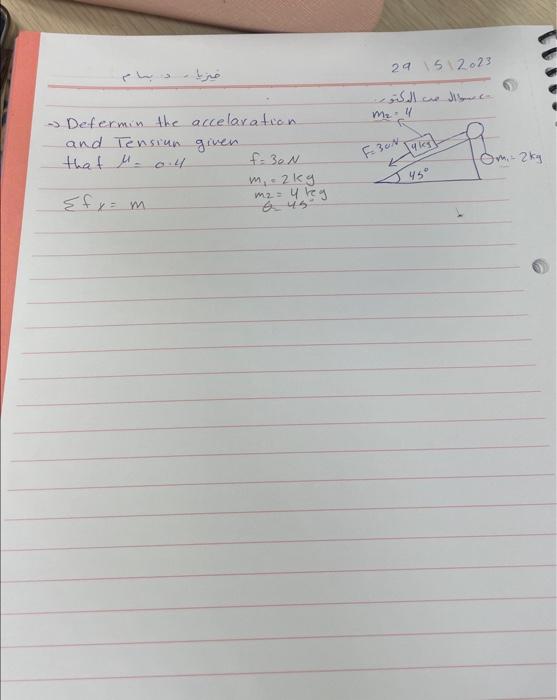 فيزياء د. بسام
29 \ 5 \ 2023
سؤال من الدكتور
→ Determin the accelaration
and Tension given
that μ = 0.4
f = 30 N
m₁ = 2 kg
m₂ = 4 kg
θ 45°
Σfx = m
m₂ = 4
F = 30N
4kg
45°
m₁ = 2 kg